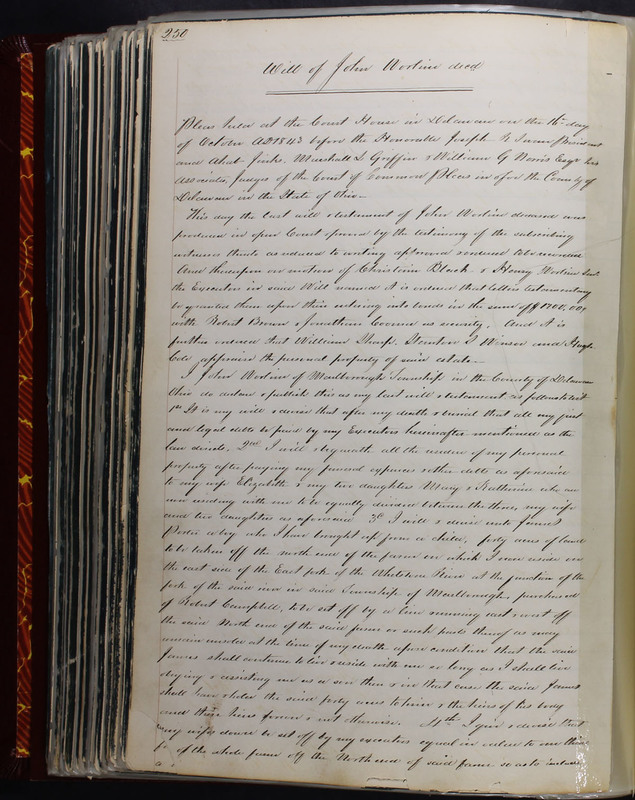 250
Will of John Worline decd
Pleas held at the Court House in Delaware on the 16th day
of October AD 1843 before the Honorable Joseph R Swan President
and Ahab Jinks, Marshall L Griffin & William G Norris Esqrs his
associates, Judges of the Court of Common Pleas in & for the County of
Delaware in the State of Ohio—
This day the last will & testament of John Worline deceased was
produced in open Court & proved by the testimony of the subscribing
witnesses thereto as reduced to writing approved & ordered to be recorded
And thereupon on motion of Christian Black & Henry Worline
the Executors in said Will named it is ordered that letters testamentary
be granted them upon their entering into bonds in the sum of
with Robert Brown & Jonathan as security. And it is
further ordered that William Sharp, Stanton and Hugh
Cole appraise the personal property of said estate—
I John Worline of Marlborough Township in the County of Delaware
Ohio do declare & publish this as my last will & testament as follows to wit
1st It is my will & desire that after my death & burial that all my just
and legal debts be paid by my Executors hereinafter mentioned as the
law directs. 2nd I will & bequeath all the residue of my personal
property after paying my funeral expenses & other debts as aforesaid
to my wife Elizabeth & my two daughters Mary & Katherine who are
now residing with me to be equally divided between the three, my wife
and two daughters as aforesaid 3d I will & devise unto James
Porter a boy who I have brought up from a child, forty acres of land
to be taken off the north end of the farm on which I now reside on
the east side of the East fork of the Whetstone River at the junction of the
fork of the said river in said Township of Marlborough, purchased
of Robert Campbell, to be set off by a line running east & west off
the said North end of the said farm or such parts thereof as may
remain unsold at the time of my death upon condition that the said
James shall continue to live & reside with me so long as I shall live
obeying & assisting me as a son then & in that case the said James
shall have & hold the said forty acres to him & the heirs of his body
and their heirs forever & not otherwise. 4th I give & devise that
my wifes dower be set off by my executors equal in value to one third
of the whole farm off the North end of said farm so as to include